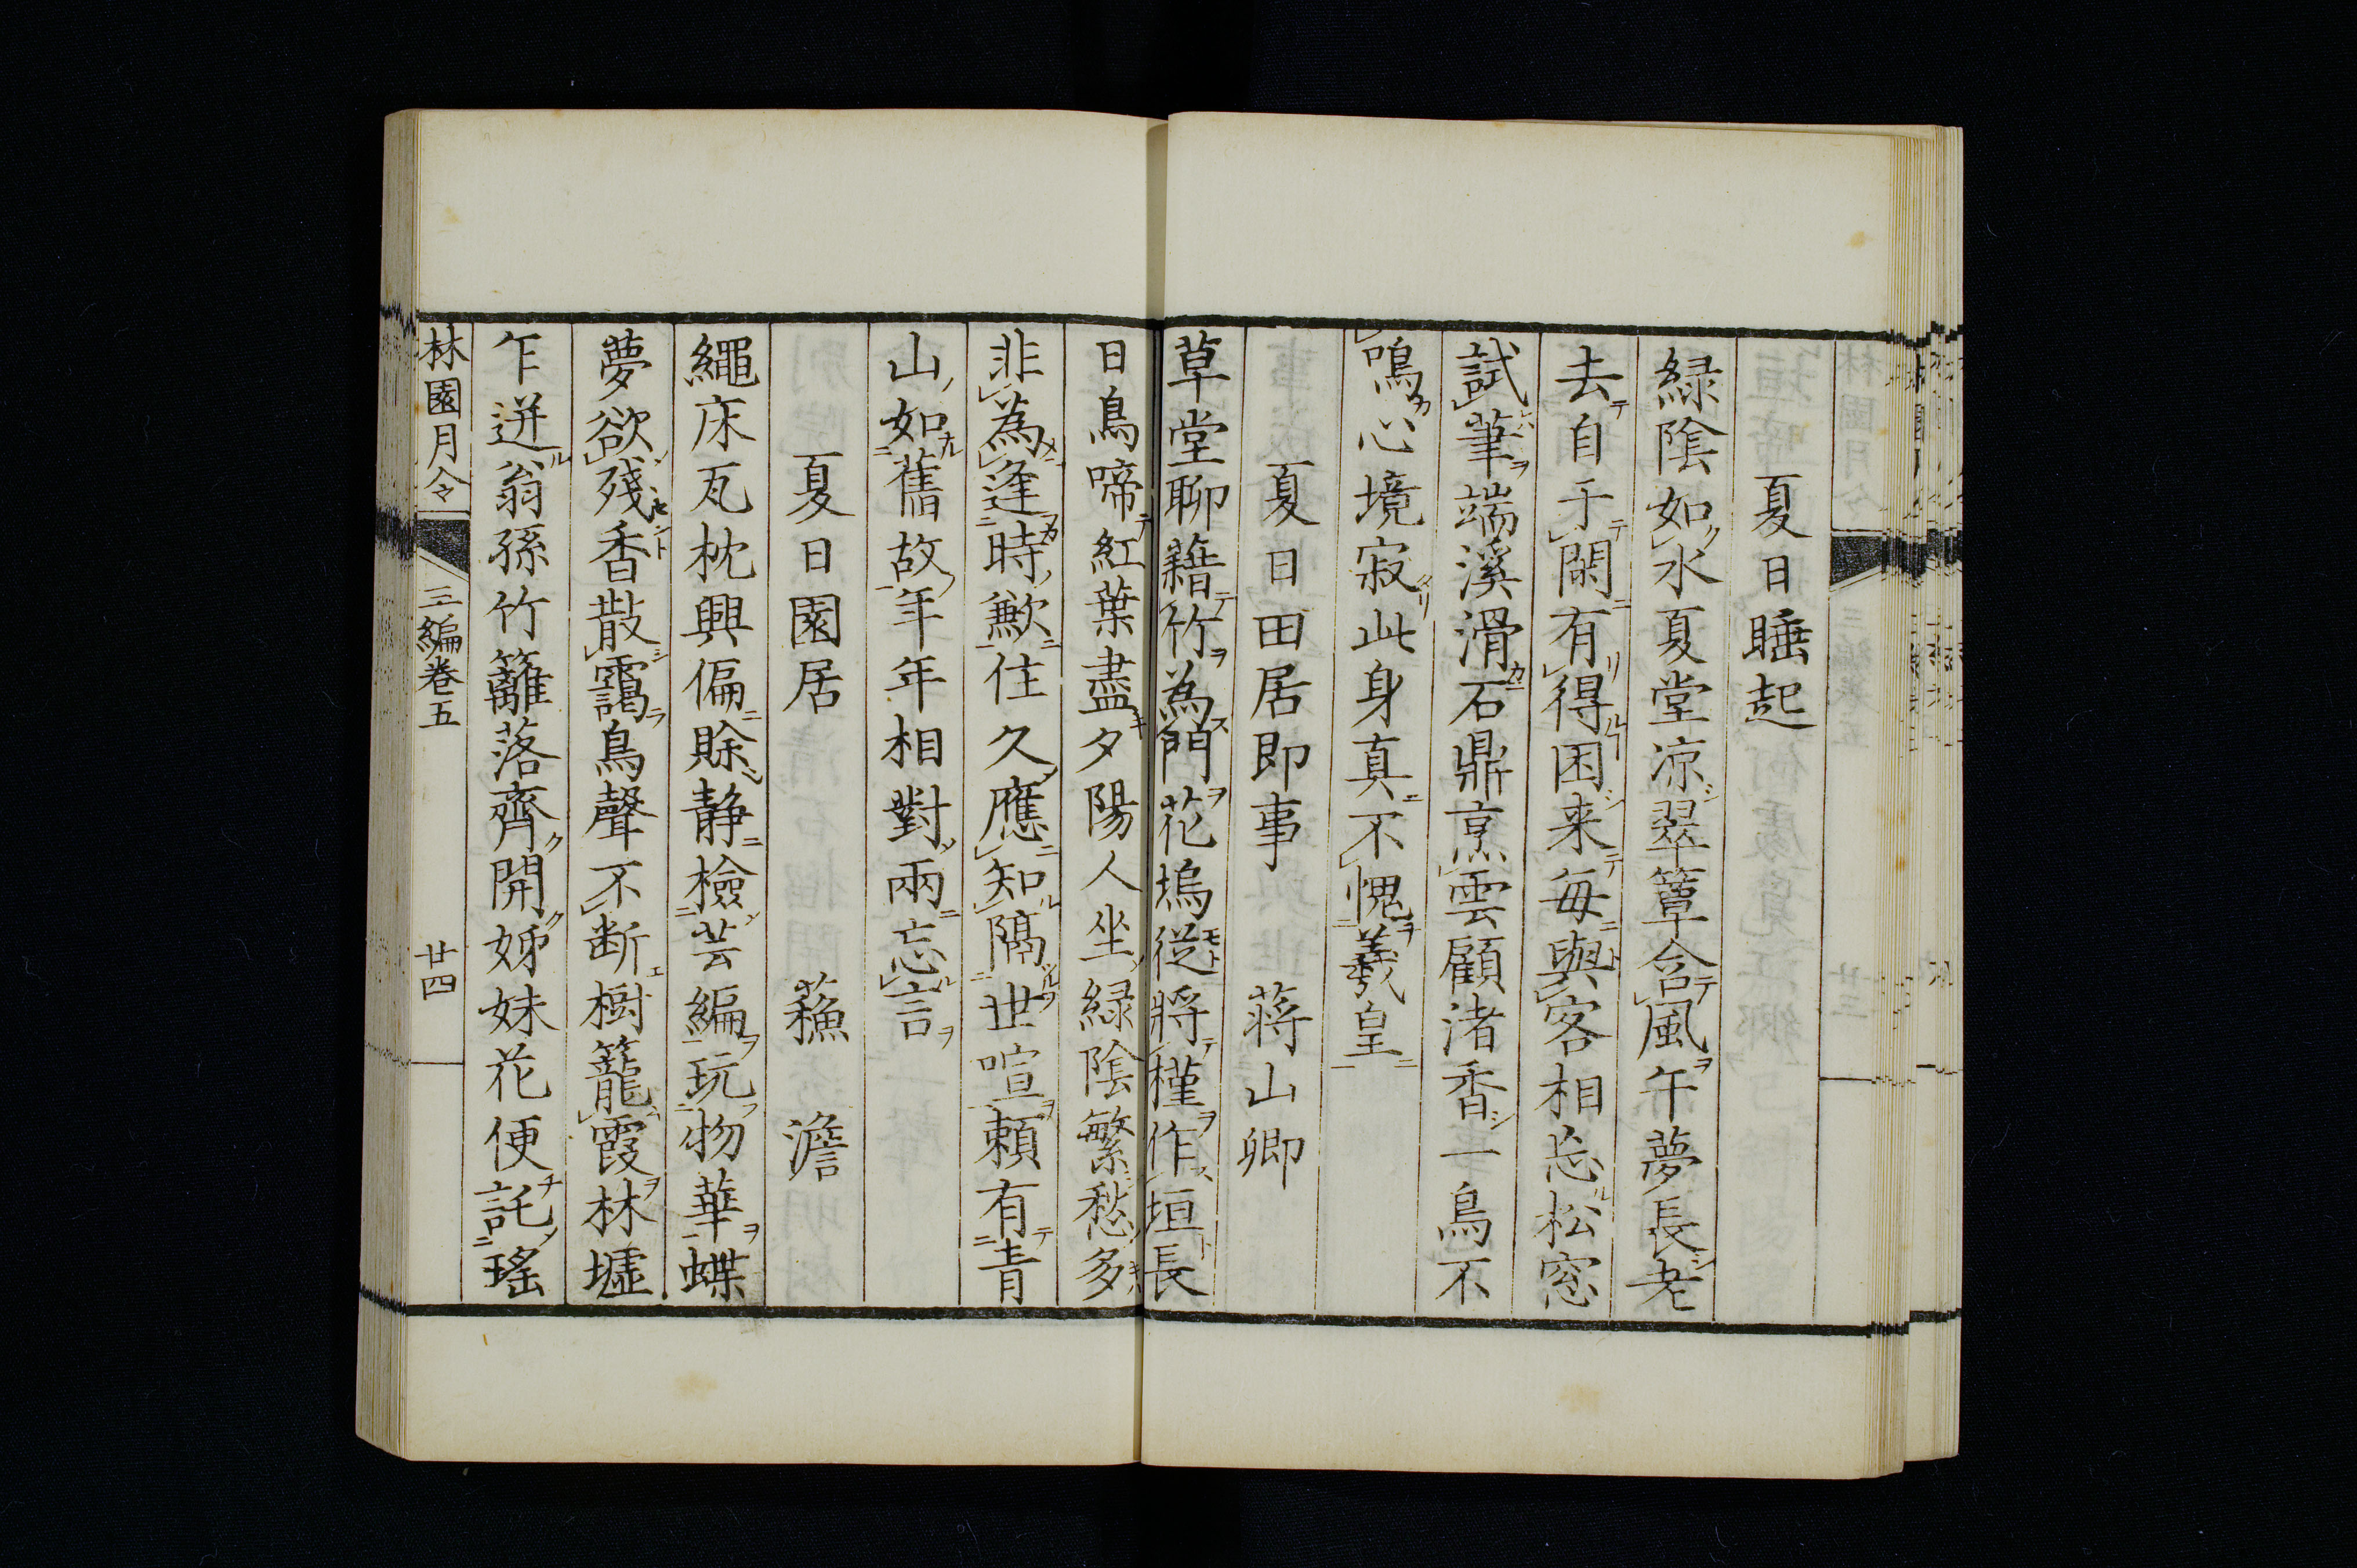 夏日睡起
緑陰如水夏堂凉翠簟含風午夢長老
去自于閑有得困来毎與客相忘松窓
試筆端溪滑石鼎烹雲顧渚香一鳥不
鳴心境寂此身真不愧羲皇
夏日田居即事 蒋山卿
草堂聊藉竹為門花塢従將槿作垣長
日鳥啼紅葉盡夕陽人坐緑陰繁愁多
非為逢時歉住久應知隔世喧頼有青
山如舊故年年相對兩忘言
夏日園居 蘓澹
繩床瓦枕興偏賖静檢芸編玩物華蝶
夢欲殘香散靄鳥聲不断樹籠霞林墟
乍迸翁孫竹籬落齊開姊妹花便託瑤
林園月令 三編巻五 廿四